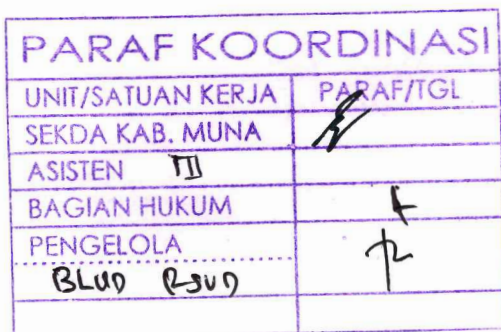 PARAF KOORDINASI
UNIT/SATUAN KERJA PARAF/TGL
SEKDA KAB. MUNA
ASISTEN III
BAGIAN HUKUM
PENGELOLA
BLUD RSUD